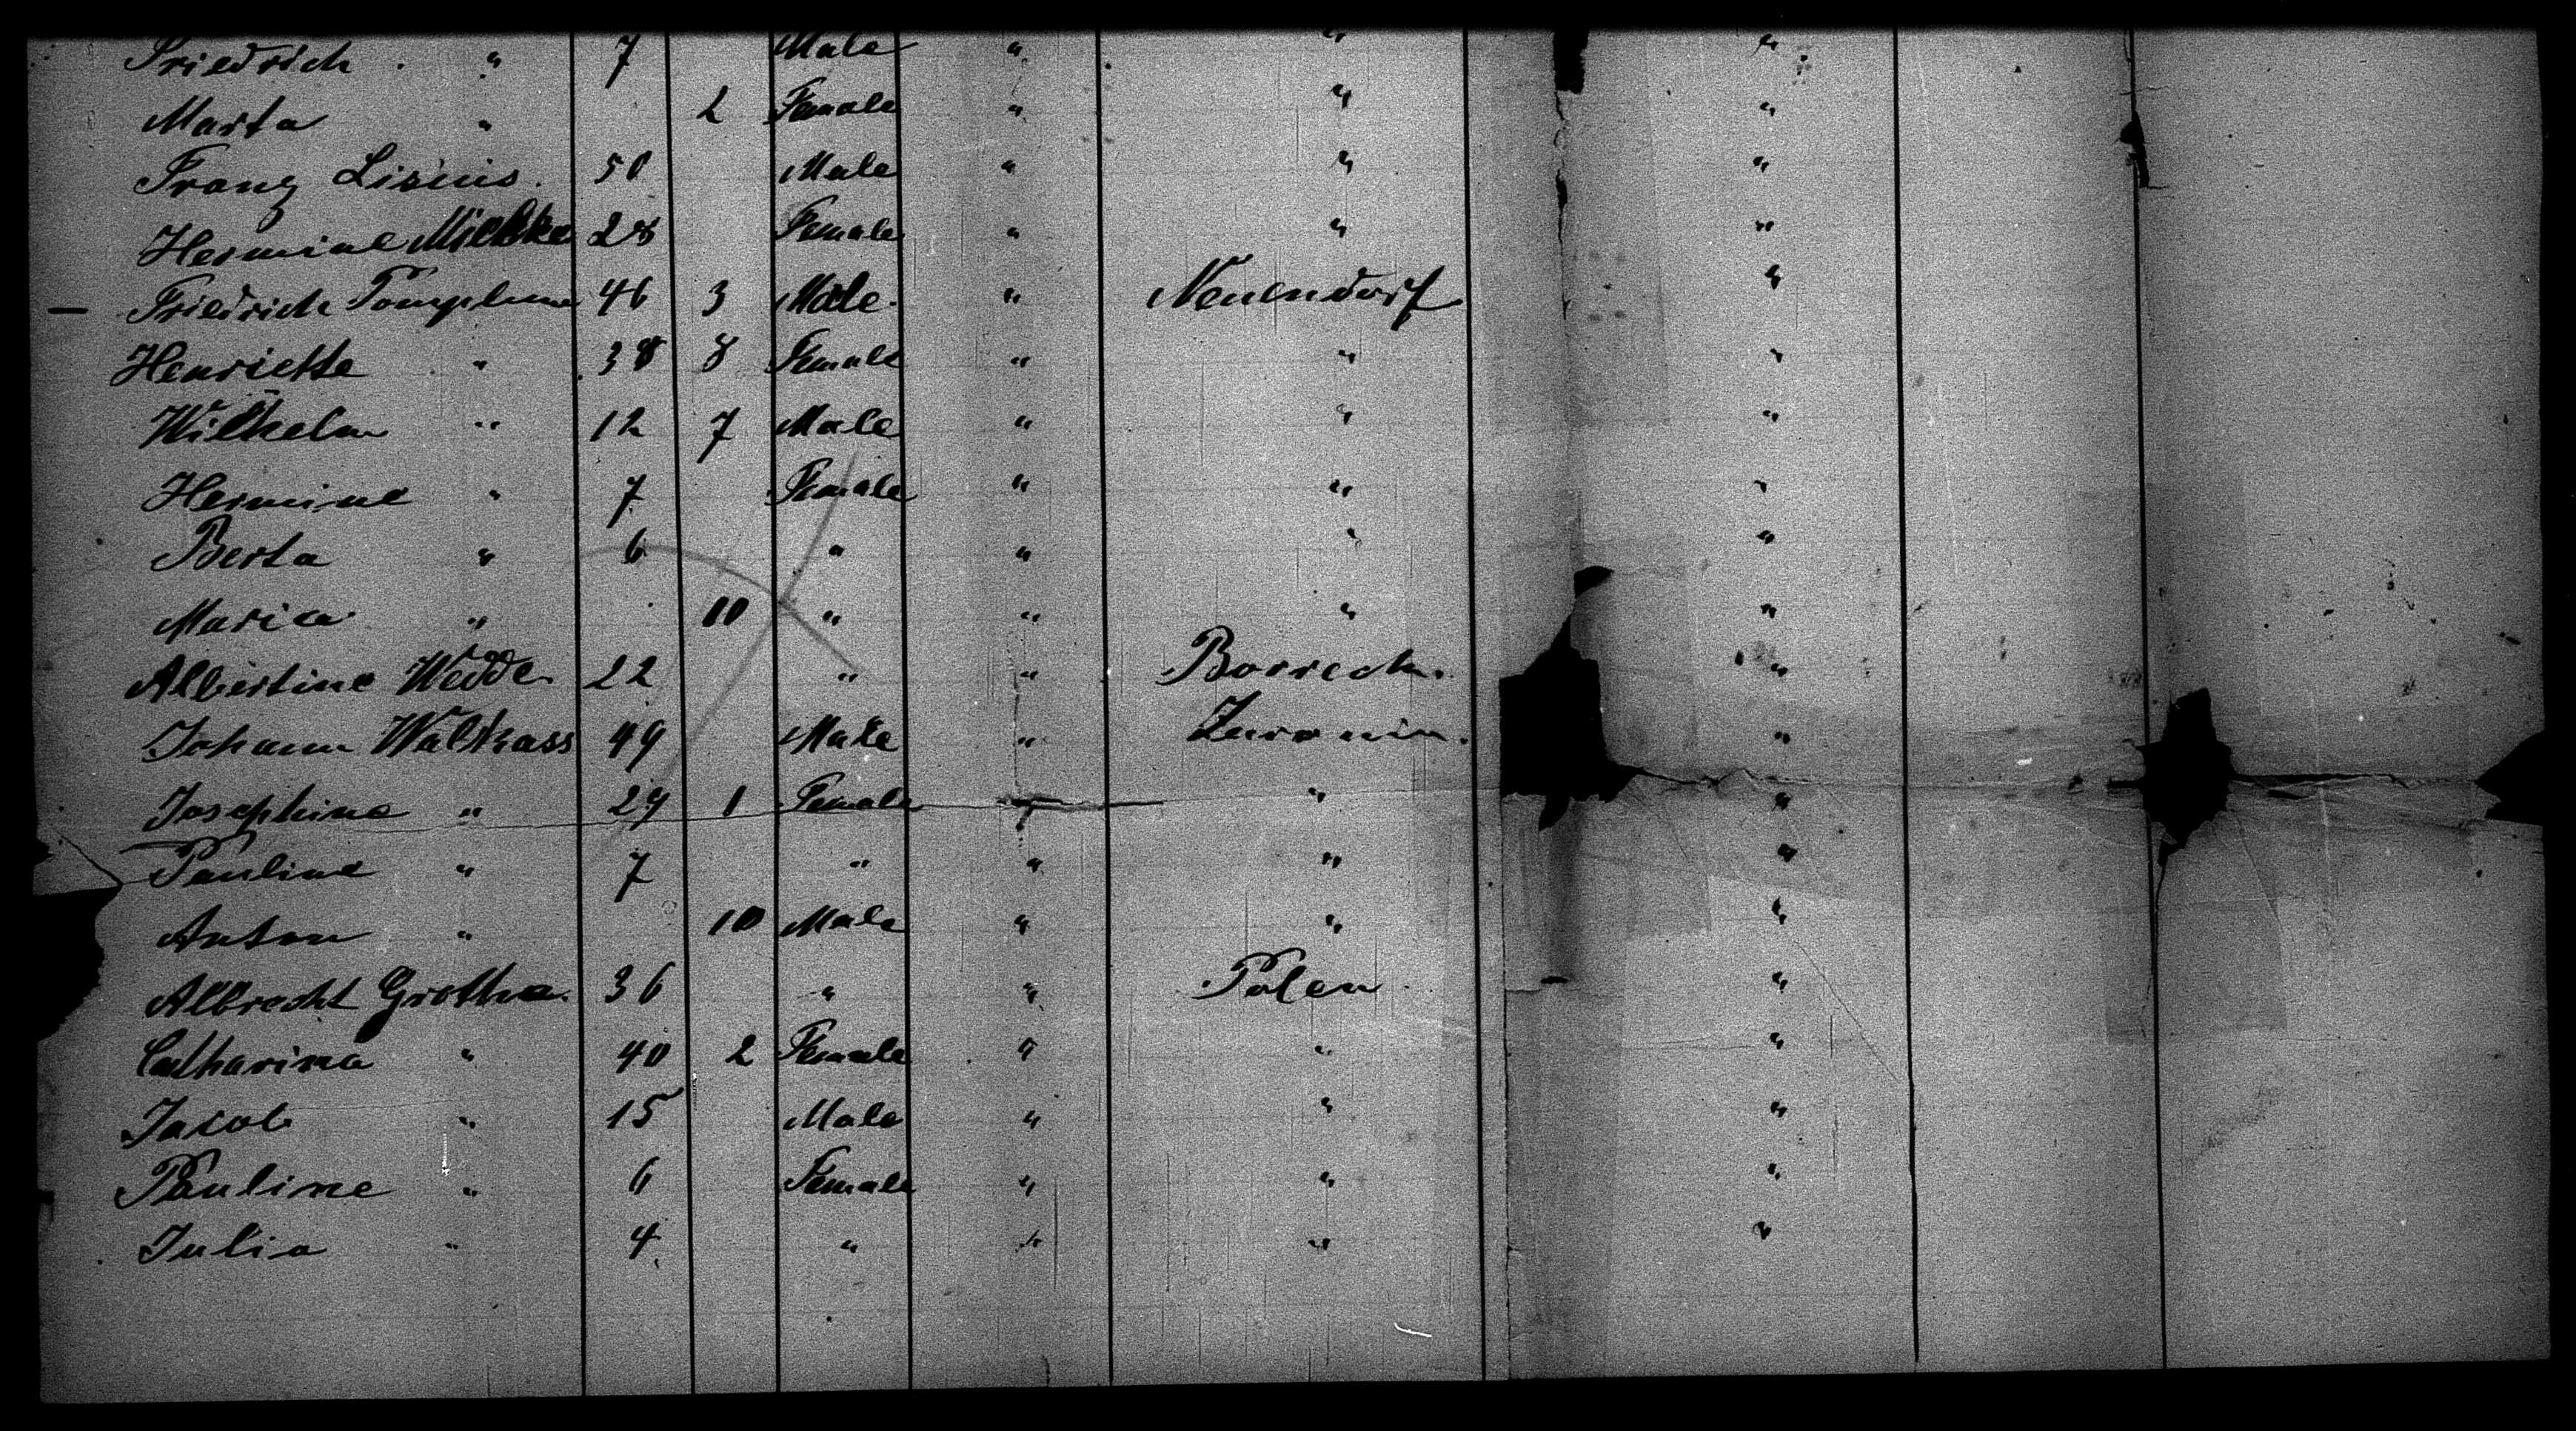 Friedrich " 7 Male " " "
Marta " 2 Female " " "
Franz Lisius. 50 Male " " "
Hermine Mielke 28 Female " " "
— Friedrich 46 3 Male. " Neuendorf "
Henriette " 38 8 Female " " "
Wilhelm " 12 7 Male " " "
Hermine " 7 Female " " "
Berta " 6 " " " "
Maria " 10 " " " "
Albertine Wedde. 22 " " "
Johann Walkass 49 Male " "
Josephine " 29 1 Female " " "
Pauline " 7 " " " "
Anton " 10 Male " " "
Albrecht Grothe. 36 " " Polen "
Catharina " 40 2 Female " " "
Jacob " 15 Male " " "
Pauline " 6 Female " " "
Julia " 4 " " " "